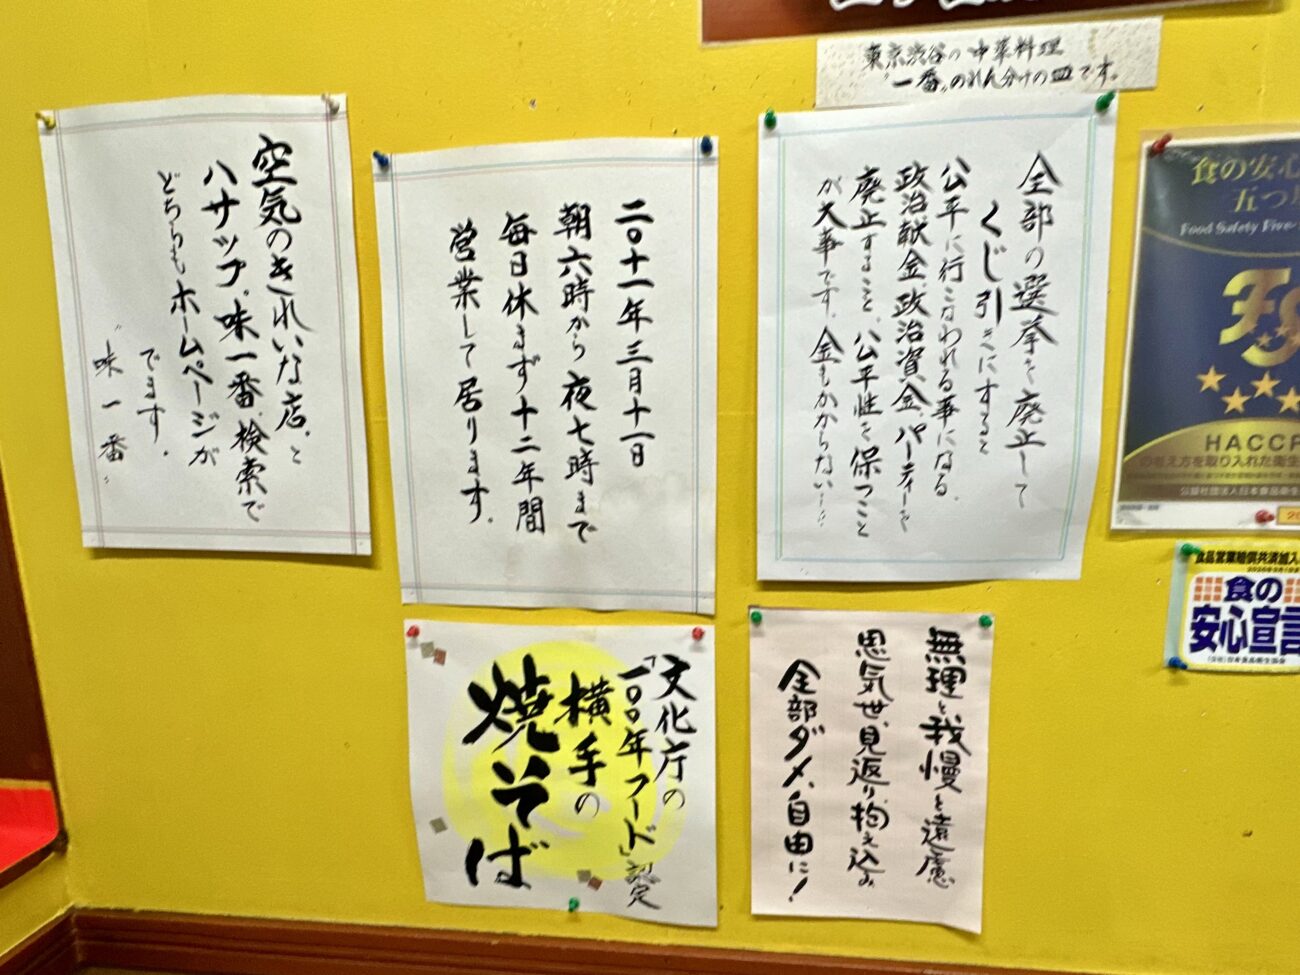 東京渋谷の中華料理
"一番"のれん分けの皿です。
空気のきれいな店。と
ハサップ。味一番。検索で
どちらもホームページが
でます。
"味一番"
二〇十一年三月十一日
朝六時から夜七時まで
毎日休まず十二年間
営業して居ります。
全部の選挙を廃止して
くじ引きにすると
公平に行こなわれる事になる。
政治献金、政治資金、パーティーを
廃止すること、公平性を保つこと
が大事です。金もかからない…
食の安心
五つ
Food Safety Five-
HACCP
の考え方を取り入れた衛生
公益社団法人日本食品衛生
食品営業賠償共済加入
食の
安心宣言
文化庁の
「一〇〇年フード」認定
横手の
焼そば
無理と我慢と遠慮
思気世、見返り、抱え込み
全部ダメ、自由に!